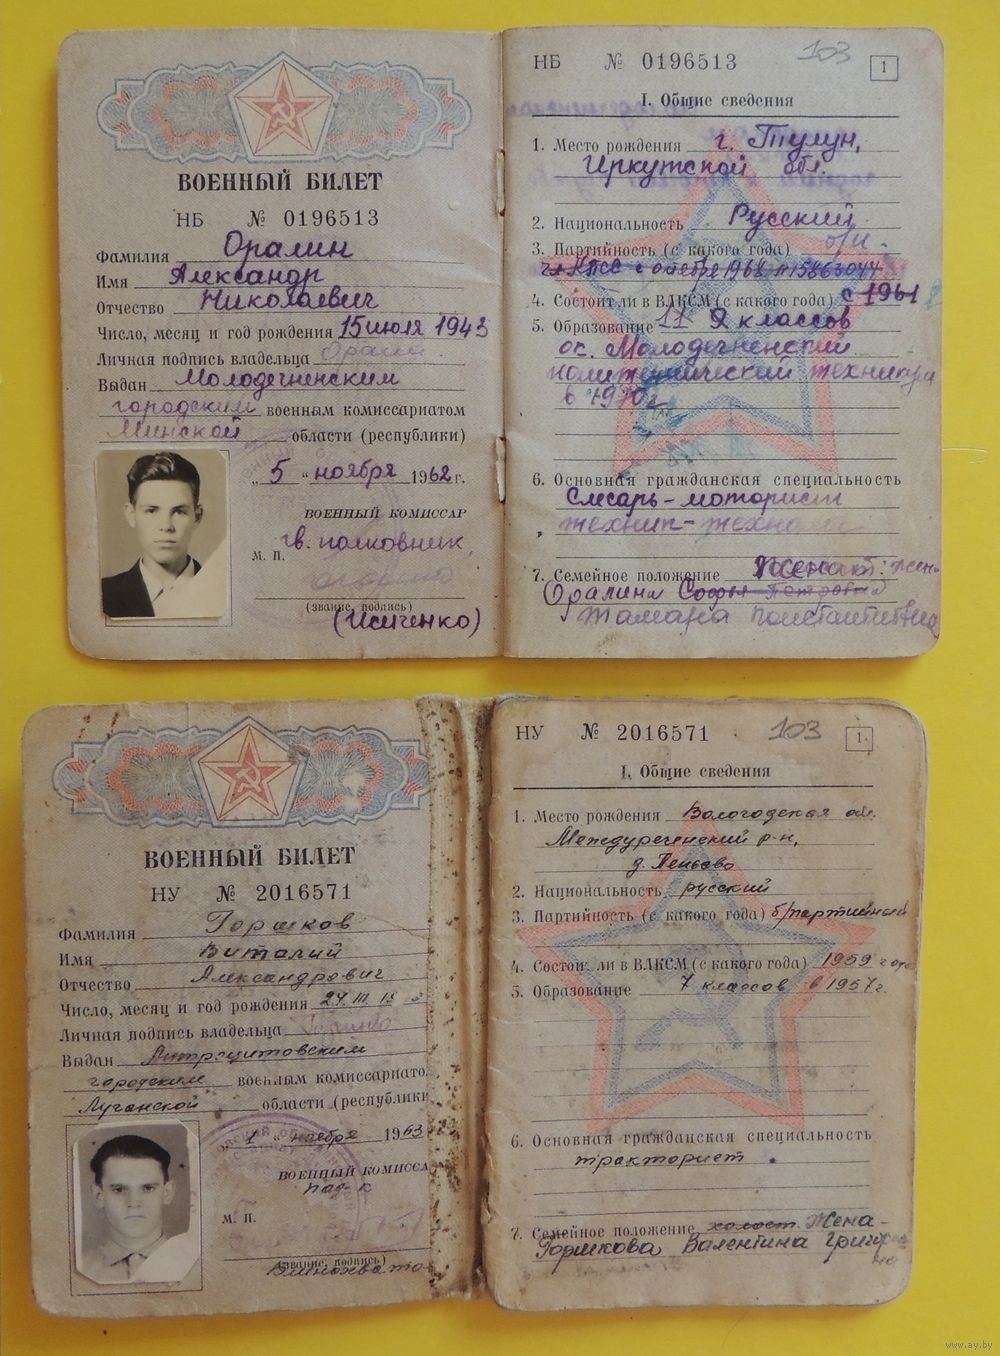 ВОЕННЫЙ БИЛЕТ
НБ № 0196513
Фамилия Оралин
Имя Александр
Отчество Николаевич
Число, месяц и год рождения 15 июля 1943
Личная подпись владельца
Выдан Молодечненским
городским военным комиссариатом
Минской области (республики)
„5“ ноября 1962 г.
ВОЕННЫЙ КОМИССАР
гв. полковник
М. П.
(звание, подпись)
(Исиченко)
НБ № 0196513 103 1
I. Общие сведения
1. Место рождения г. Тулун,
Иркутской обл.
2. Национальность Русский
3. Партийность (с какого года)
чл. КПСС с 1968 № 15863044
4. Состоит ли в ВЛКСМ (с какого года) с 1961
5. Образование 11 9 классов
ок. Молодечненский
политехнический техникум
в 1970 г.
6. Основная гражданская специальность
Слесарь-моторист
техник-технолог
7. Семейное положение Женат: жена
Оралина Софья Петровна
Тамара Константиновна
ВОЕННЫЙ БИЛЕТ
НУ № 2016571
Фамилия Горшков
Имя Виталий
Отчество Александрович
Число, месяц и год рождения 24 III
Личная подпись владельца
Выдан Антрацитовским
городским военным комиссариато
Луганской области (республики
„1“ ноября 1963
ВОЕННЫЙ КОМИССА
М. П.
(звание, подпись)
НУ № 2016571 103 1
I. Общие сведения
1. Место рождения Вологодская обл.
Междуреченский р-н,
д. Пеньево
2. Национальность русский
3. Партийность (с какого года) б/партийный
4. Состоит ли в ВЛКСМ (с какого года) 1959 года
5. Образование 7 классов в 1957 г.
6. Основная гражданская специальность
тракторист
7. Семейное положение холост. Жена -
Горшкова Валентина Григорьевна
www.ay.by